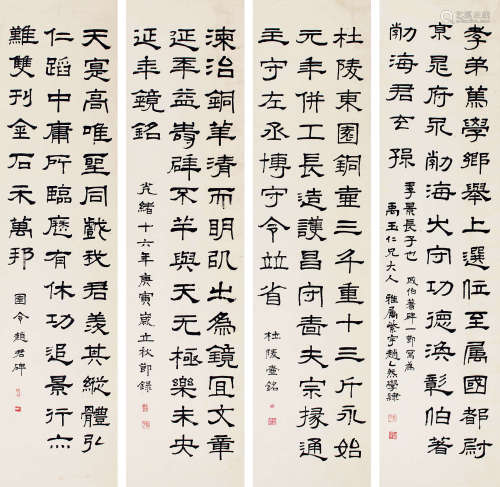 孝弟篤學鄉舉上選位至國都尉
京兆府丞勃海太守功德渙彰伯著
勃海君玄孫
季景長子也
伯著碑一節寫為
禹玉仁兄大人雅屬
杜陵東園銅壷三斗重十三斤永始
元年供工長造護昌守嗇夫宗掾通
主守左丞博守令並省
杜陵壷銘
湅治銅華清而明㠯出為鏡宜文章
延年益壽辟不羊與天無極樂未央
延年鏡銘
光緒十六年庚寅歲立秋節錄
天寔高唯聖同戲我君羨其縱體弘
仁蹈中庸所臨歷有休功追景行亦
難雙刊金石示萬邦
圉令趙君碑